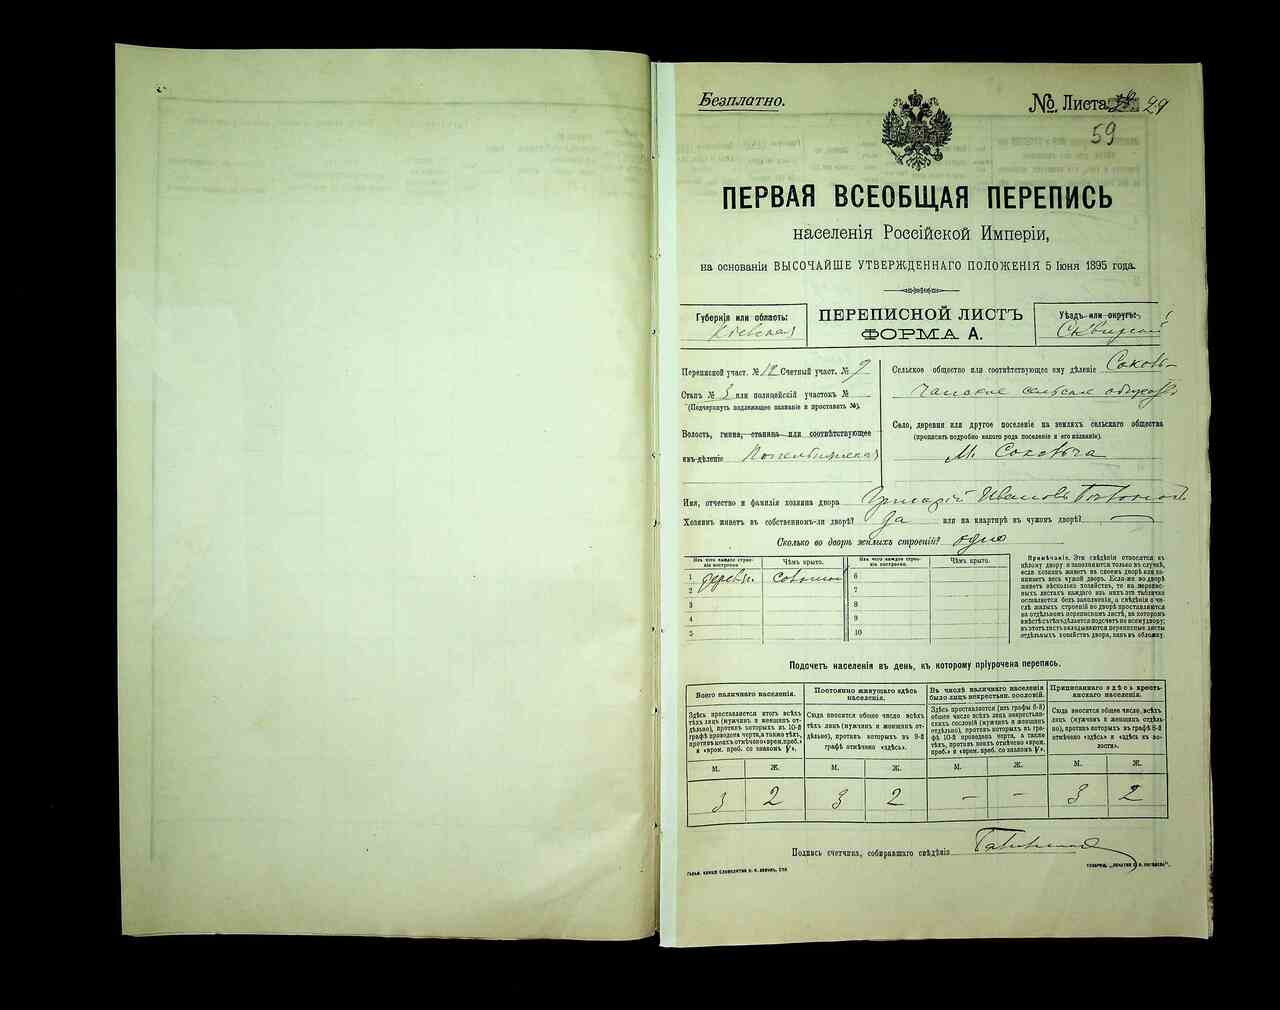 Безплатно.
№ Листа 29
59
ПЕРВАЯ ВСЕОБЩАЯ ПЕРЕПИСЬ
населенія Россійской Имперіи,
на основаніи ВЫСОЧАЙШЕ УТВЕРЖДЕННАГО ПОЛОЖЕНІЯ 5 Іюня 1895 года.
Губернія или область:
Кіевская
ПЕРЕПИСНОЙ ЛИСТЪ
ФОРМА А.
Уѣздъ или округъ:
Сквирскій
Переписной участ. № 12 Счетный участ. № 9
Станъ № 3 или полицейскій участокъ №
(Подчеркнуть подлежащее названіе и проставить №).
Волость, гмина, станица или соотвѣтствующее
имъ дѣленіе
Сельское общество или соотвѣтствующее ему дѣленіе Соковъ-
чанское сельское
Село, деревня или другое поселеніе на земляхъ сельскаго общества
(прописать подробно какого рода поселеніе и его названіе).
М. Соковъча
Имя, отчество и фамилія хозяина двора Григорій Ивановъ
Хозяинъ живетъ въ собственномъ-ли дворѣ? Да или на квартирѣ въ чужомъ дворѣ? —
Сколько во дворѣ жилыхъ строеній? одно
Изъ чего каждое строе-
ніе построено.
Чѣмъ крыто.
Изъ чего каждое строе-
ніе построено.
Чѣмъ крыто.
1 дерев. 6
2 7
3 8
4 9
5 10
Примѣчаніе. Эти свѣдѣнія относятся къ
цѣлому двору и заполняются только въ случаѣ,
если хозяинъ живетъ на своемъ дворѣ или за-
нимаетъ весь чужой дворъ. Если-же во дворѣ
живетъ нѣсколько хозяйствъ, то на перепис-
ныхъ листахъ каждаго изъ нихъ эта табличка
оставляется безъ заполненія, а свѣдѣнія о чи-
слѣ жилыхъ строеній во дворѣ проставляются
на отдѣльномъ переписномъ листѣ, на которомъ
вмѣстѣ съ тѣмъ дѣлается подсчетъ по всему двору;
въ этотъ листъ вкладываются переписные листы
отдѣльныхъ хозяйствъ двора, какъ въ обложку.
Подсчетъ населенія въ день, къ которому пріурочена перепись.
Всего наличнаго населенія.
Здѣсь проставляется итогъ всѣхъ
тѣхъ лицъ (мужчинъ и женщинъ от-
дѣльно), противъ которыхъ въ 10-й
графѣ проведена черта, а также тѣхъ,
противъ коихъ отмѣчено «врем. преб.»
и «врем. преб. со знакомъ V».
Постоянно живущаго здѣсь
населенія.
Сюда вносится общее число всѣхъ
тѣхъ лицъ (мужчинъ и женщинъ от-
дѣльно), противъ которыхъ въ 9-й
графѣ отмѣчено «здѣсь».
Въ числѣ наличнаго населенія
было лицъ некрестьян. сословій.
Здѣсь проставляется (изъ графы 8-й)
общее число всѣхъ лицъ некрестьян-
скихъ сословій (мужчинъ и женщинъ
отдѣльно), противъ которыхъ въ гра-
фѣ 10-й проведена черта, а также
тѣхъ, противъ коихъ отмѣчено «врем.
преб.» и «врем. преб. со знакомъ V».
Приписаннаго здѣсь кресть-
янскаго населенія.
Сюда вносится общее число всѣхъ
лицъ (мужчинъ и женщинъ отдѣль-
но), противъ которыхъ въ графѣ 8-й
отмѣчено «здѣсь» и «здѣсь въ во-
лости».
М. Ж. М. Ж. М. Ж. М. Ж.
3 2 3 2 – – 3 2
Подпись счетчика, собиравшаго свѣдѣнія